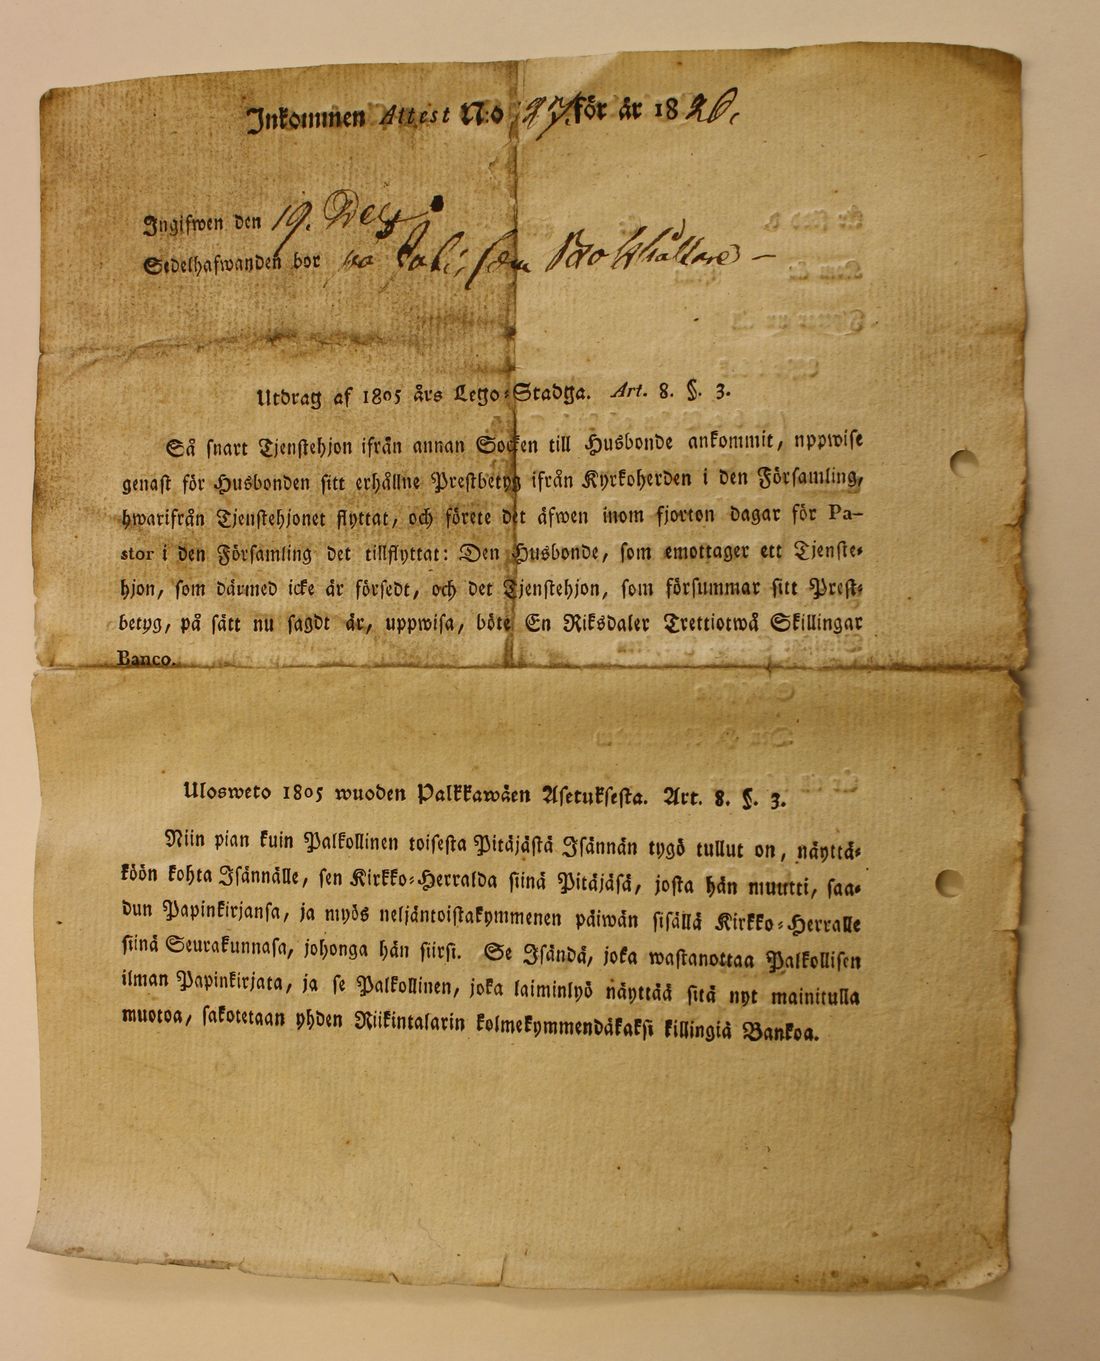 Inkommen Attest N:o 27. för år 1820.
Ingifwen den 19. Dec
Sedelhafwanden bor på som Bokhållare —
Utdrag af 1805 års Lego-Stadga. Art. 8. §. 3.
Så snart Tjenstehjon ifrån annan Socken till Husbonde ankommit, nppwise
genast för Husbonden sitt erhållne Prestbetyg ifrån Kyrkoherden i den Församling,
hwarifrån Tjenstehjonet flyttat, och förete det äfwen inom fjorton dagar för Pa-
stor i den Församling det tillflyttat: Den Husbonde, som emottager ett Tjenste-
hjon, som därmed icke är försedt, och det Tjenstehjon, som försummar sitt Prest-
betyg, på sätt nu sagdt är, uppwisa, böte En Riksdaler Trettiotwå Skillingar
Banco.
Ulosweto 1805 wuoden Palkkawäen Asetuksesta. Art. 8. §. 3.
Niin pian kuin Palkollinen toisesta Pitäjästä Isännän tygö tullut on, näyttä-
köön kohta Isännälle, sen Kirkko-Herralda siinä Pitäjäsä, josta hän muutti, saa-
dun Papinkirjansa, ja myös neljäntoistakymmenen päiwän sisällä Kirkko-Herralle
siinä Seurakunnasa, johonga hän siirsi. Se Isändä, joka wastanottaa Palkollisen
ilman Papinkirjata, ja se Palkollinen, joka laiminlyö näyttää sitä nyt mainitulla
muotoa, sakotetaan yhden Riikintalarin kolmekymmendäkaksi killingiä Bankoa.